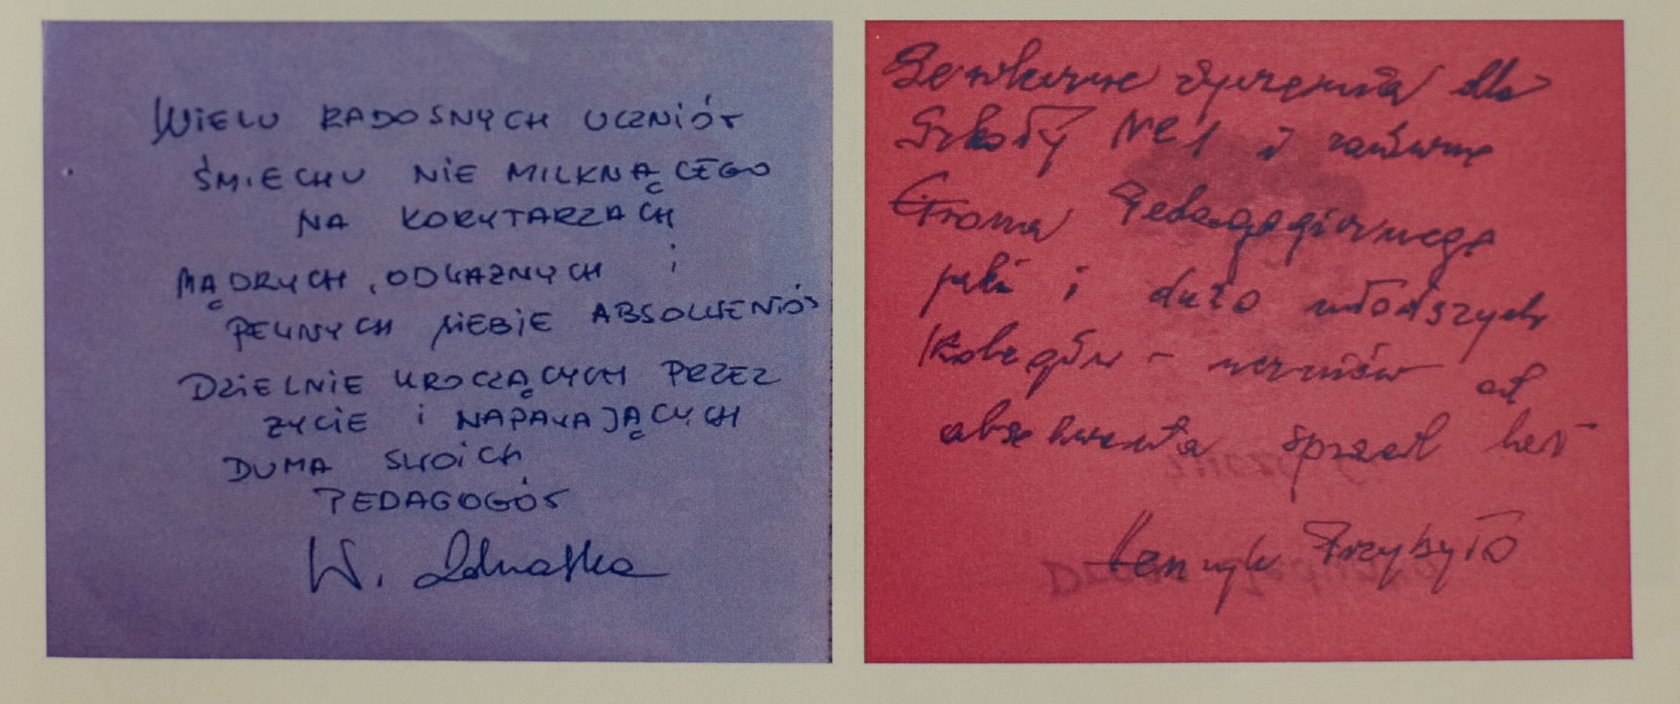 WIELU RADOSNYCH UCZNIÓW
ŚMIECHU NIE MILKNĄCEGO
NA KORYTARZACH
MĄDRYCH, ODWAŻNYCH i
PEWNYCH SIEBIE ABSOLWENTÓW
DZIELNIE KROCZĄCYCH PRZEZ
ŻYCIE i NAPAWAJĄCYCH
DUMA SWOICH
PEDAGOGÓW
W.
Serdeczne życzenia dla
Szkoły Nr 1 i zarówno
Grona Pedagogicznego
jak i dużo młodszych
Kolegów - uczniów od
absolwenta sprzed lat
Henryk Przybyło